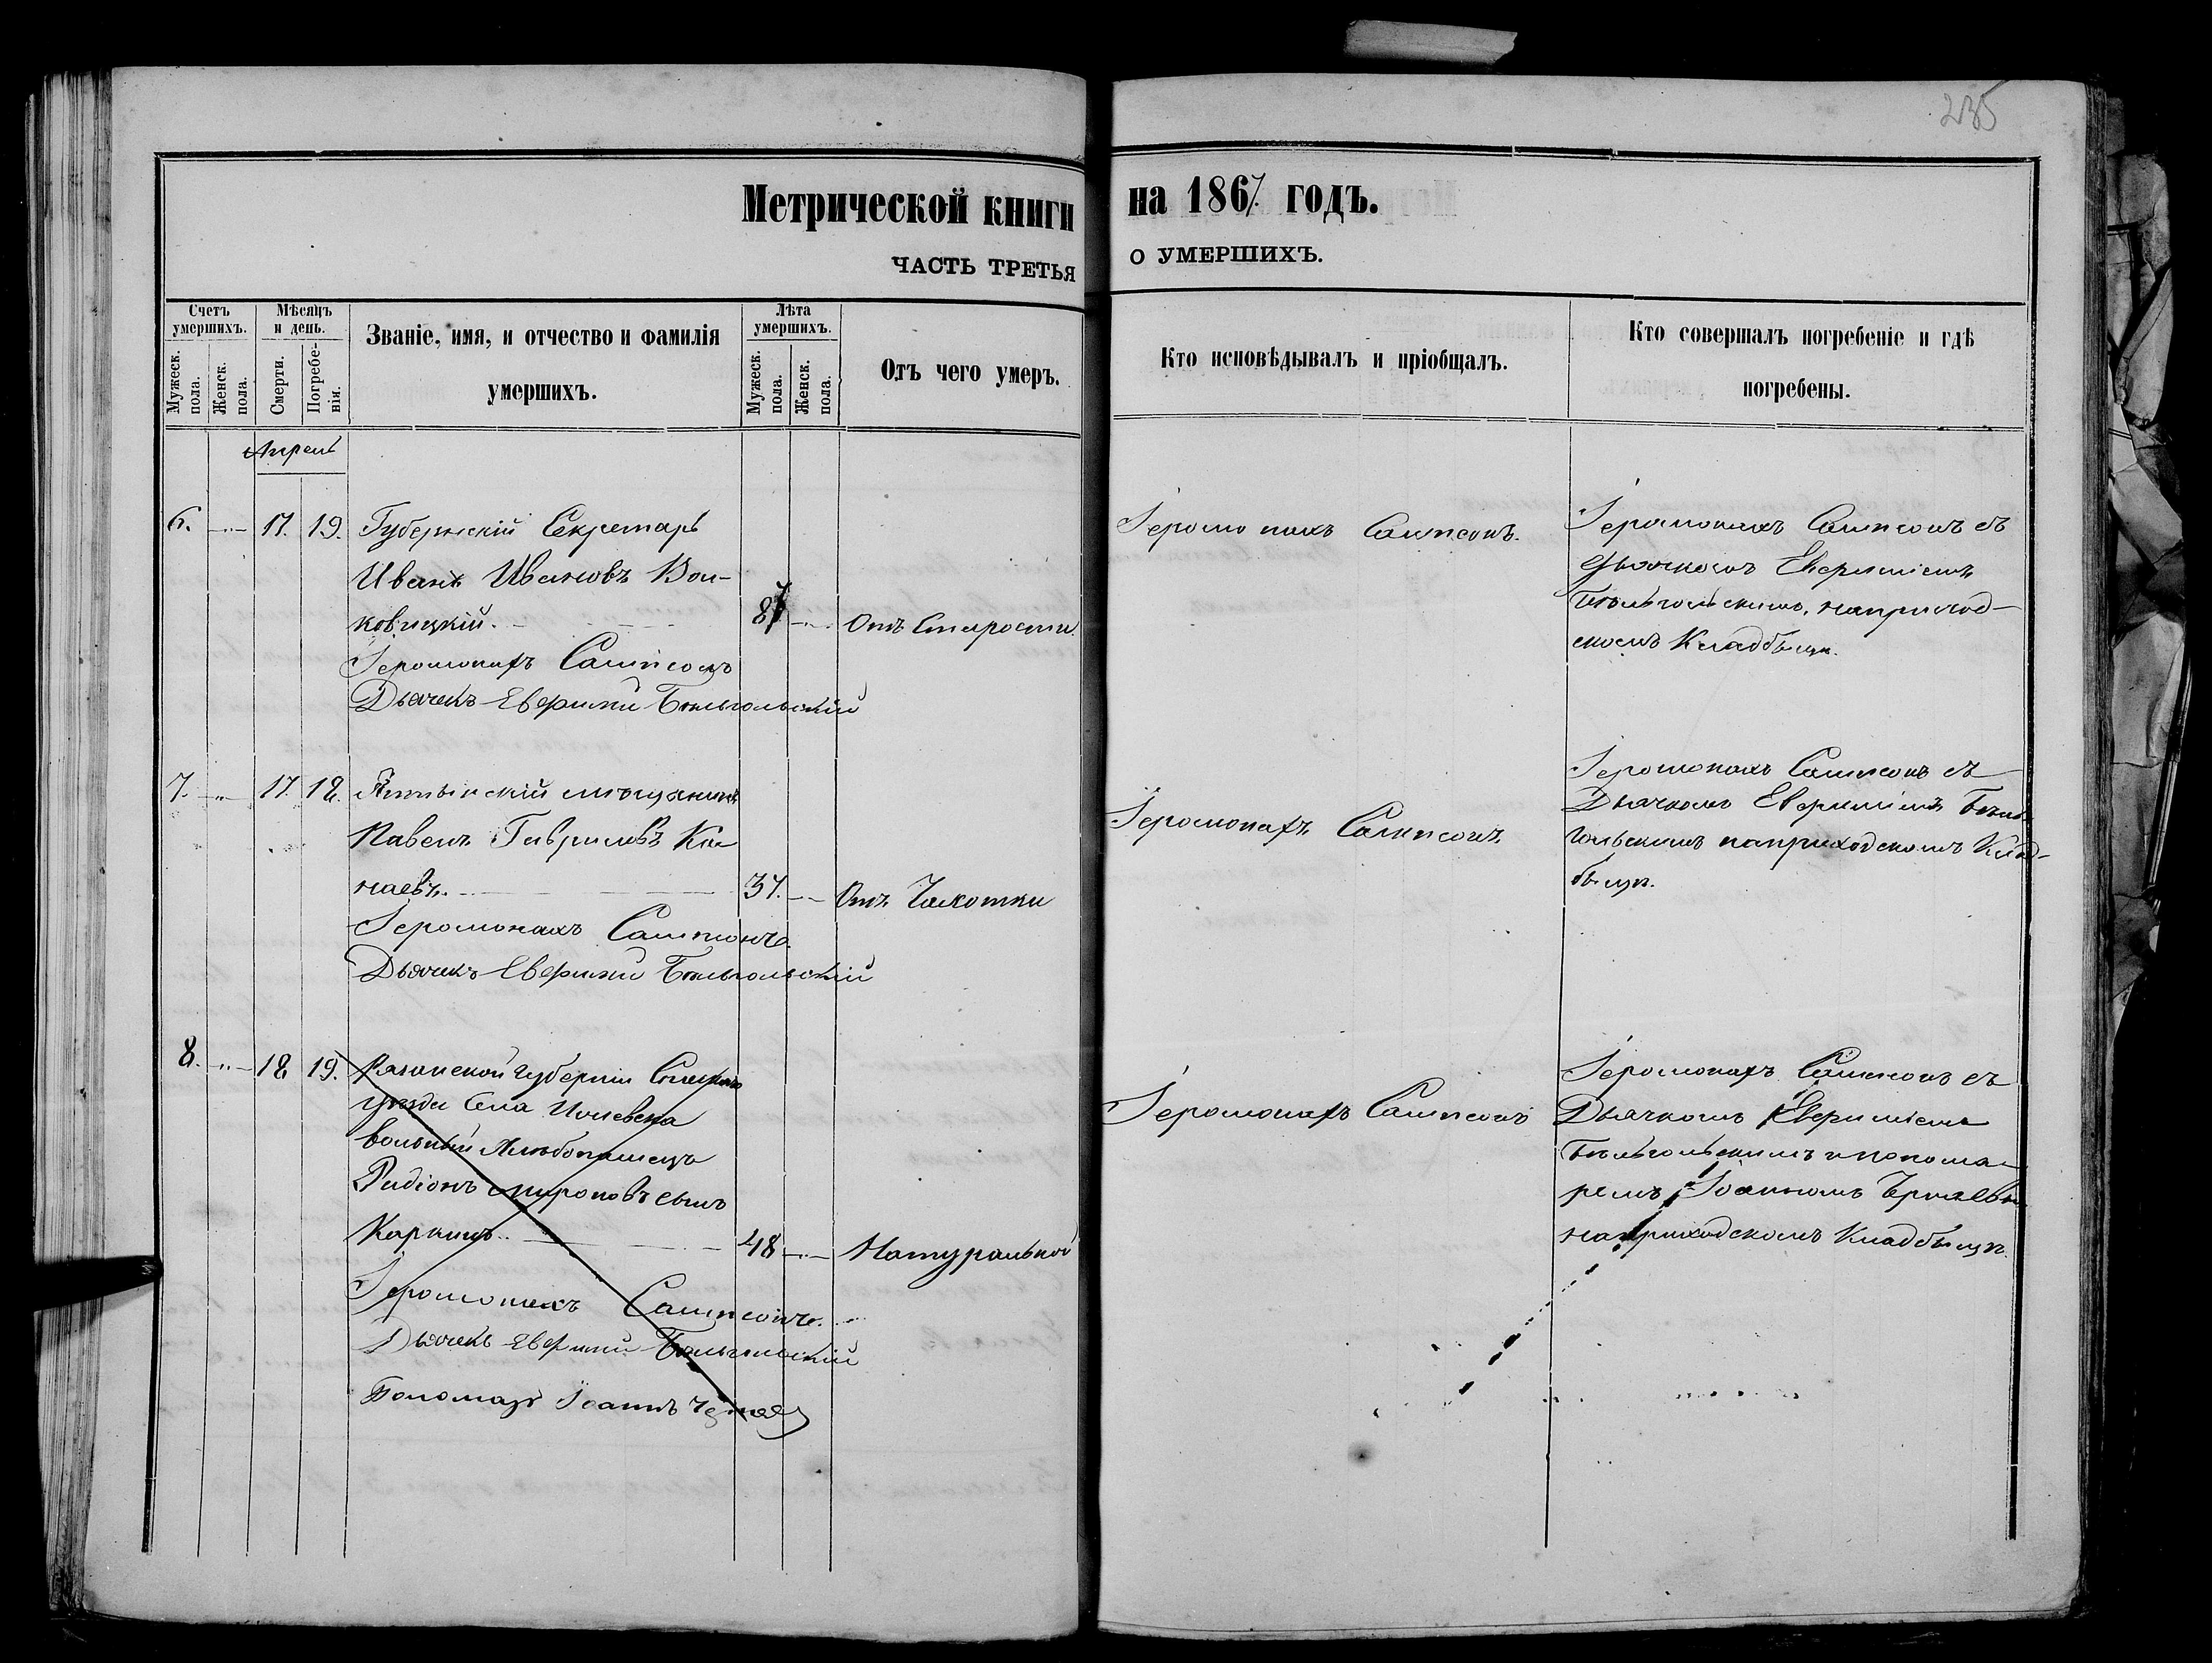 235
Метрической книги на 1867 годъ.
ЧАСТЬ ТРЕТЬЯ О УМЕРШИХЪ.
Счетъ умершихъ.
Мужеск. пола.
Женск. пола.
Мѣсяцъ и день.
Смерти.
Погребенія.
Званіе, имя, и отчество и фамилія
умершихъ.
Лѣта умершихъ.
Мужеск. пола.
Женск. пола.
Отъ чего умеръ.
Кто исповѣдывалъ и пріобщалъ.
Кто совершалъ погребеніе и гдѣ
погребены.
Апрель
6. 17. 19. Губернскій Секретарь
Иванъ Ивановъ
ковицкій. 87 Отъ Старости.
Іеромонахъ Сампсонъ
Дьячекъ Евфимій Бѣльгольскій
Іеромонахъ Сампсонъ.
Іеромонахъ Сампсонъ съ
Дьячкомъ Евфиміемъ
Бѣльгольскимъ, на приход-
скомъ Кладбищѣ.
7. 17. 18. Ялтынскій мѣщанинъ
Павелъ Гавриловъ Ка-
наевъ. 37. Отъ Чахотки
Іеромонахъ Сампсонъ.
Дьячекъ Евфимій Бѣльгольскій
Іеромонахъ Сампсонъ
Іеромонахъ Сампсонъ съ
Дьячкомъ Евфиміемъ Бѣль-
гольскимъ на приходскомъ Клад-
бищѣ.
8. 18 19. Рязанской Губерніи
уезда Села
вольный Хлѣбопашецъ
Радіонъ Мироновъ сынъ
Каркинъ. 48 Натуральной
Іеромонахъ Сампсонъ.
Дьячекъ Евфимій Бѣльгольскій
Пономарь Іоаннъ
Іеромонахъ Сампсонъ
Іеромонахъ Сампсонъ съ
Дьячкомъ Евфиміемъ
Бѣльгольскимъ и понома-
ремъ Іоанномъ
на приходскомъ Кладбищѣ.